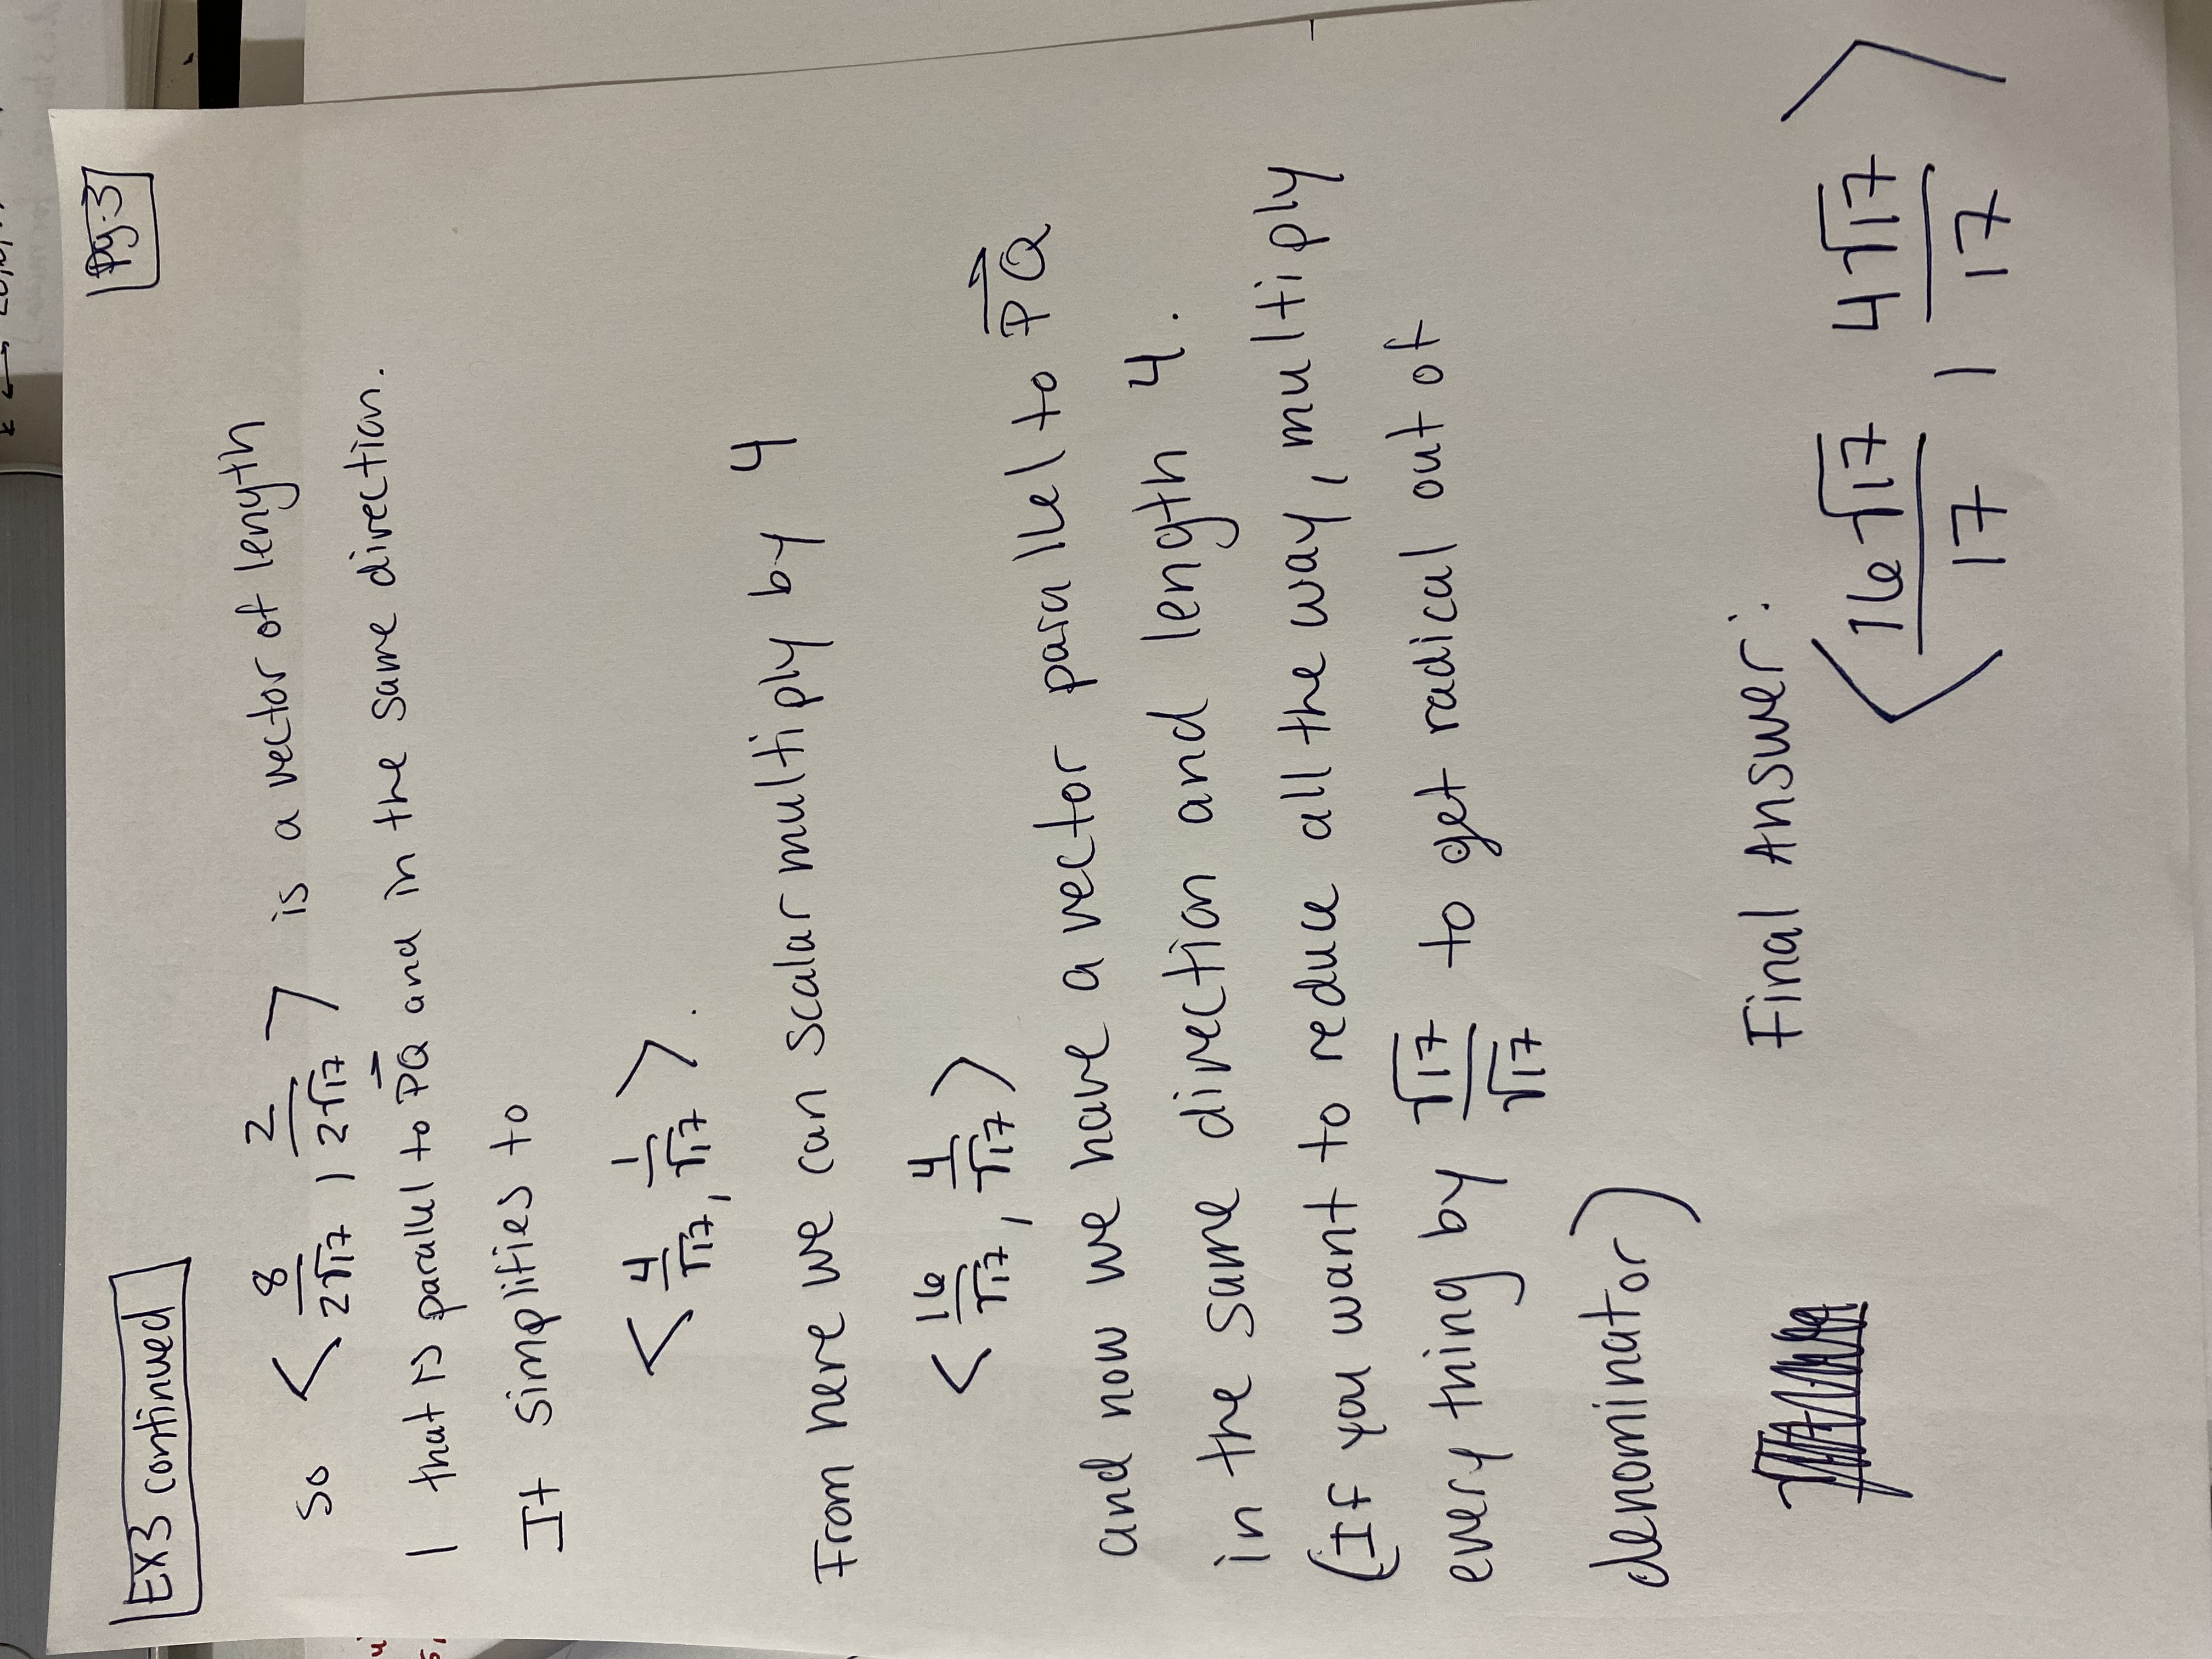 EX3 continued
Pg.3
So < 8/2√17 , 2/2√17 > is a vector of length
1 that is parallel to PQ and in the same direction.
It simplifies to
< 4/√17 , 1/√17 > .
From here we can scalar multiply by 4
< 16/√17 , 4/√17 >
and now we have a vector parallel to PQ
in the same direction and length 4.
(If you want to reduce all the way, multiply
every thing by √17/√17 to get radical out of
denominator)
Final Answer:
< 16√17/17 , 4√17/17 >